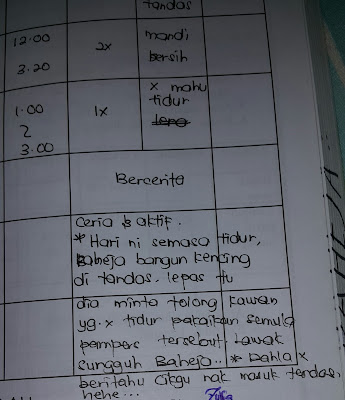 tandas
12.00
3.20
2x
mandi
bersih
1.00
2
3.00
1x
x mahu
tidur
lepa
Bercerita
Ceria & aktif.
* Hari ni semasa tidur,
Baheja bangun kencing
di tandas. lepas tu
dia minta tolong kawan
yg. x tidur pakaikan semula
pampers tersebut. Lawak
sungguh Baheja.. * dahla x
beritahu cikgu nak masuk tandas,
hehe...